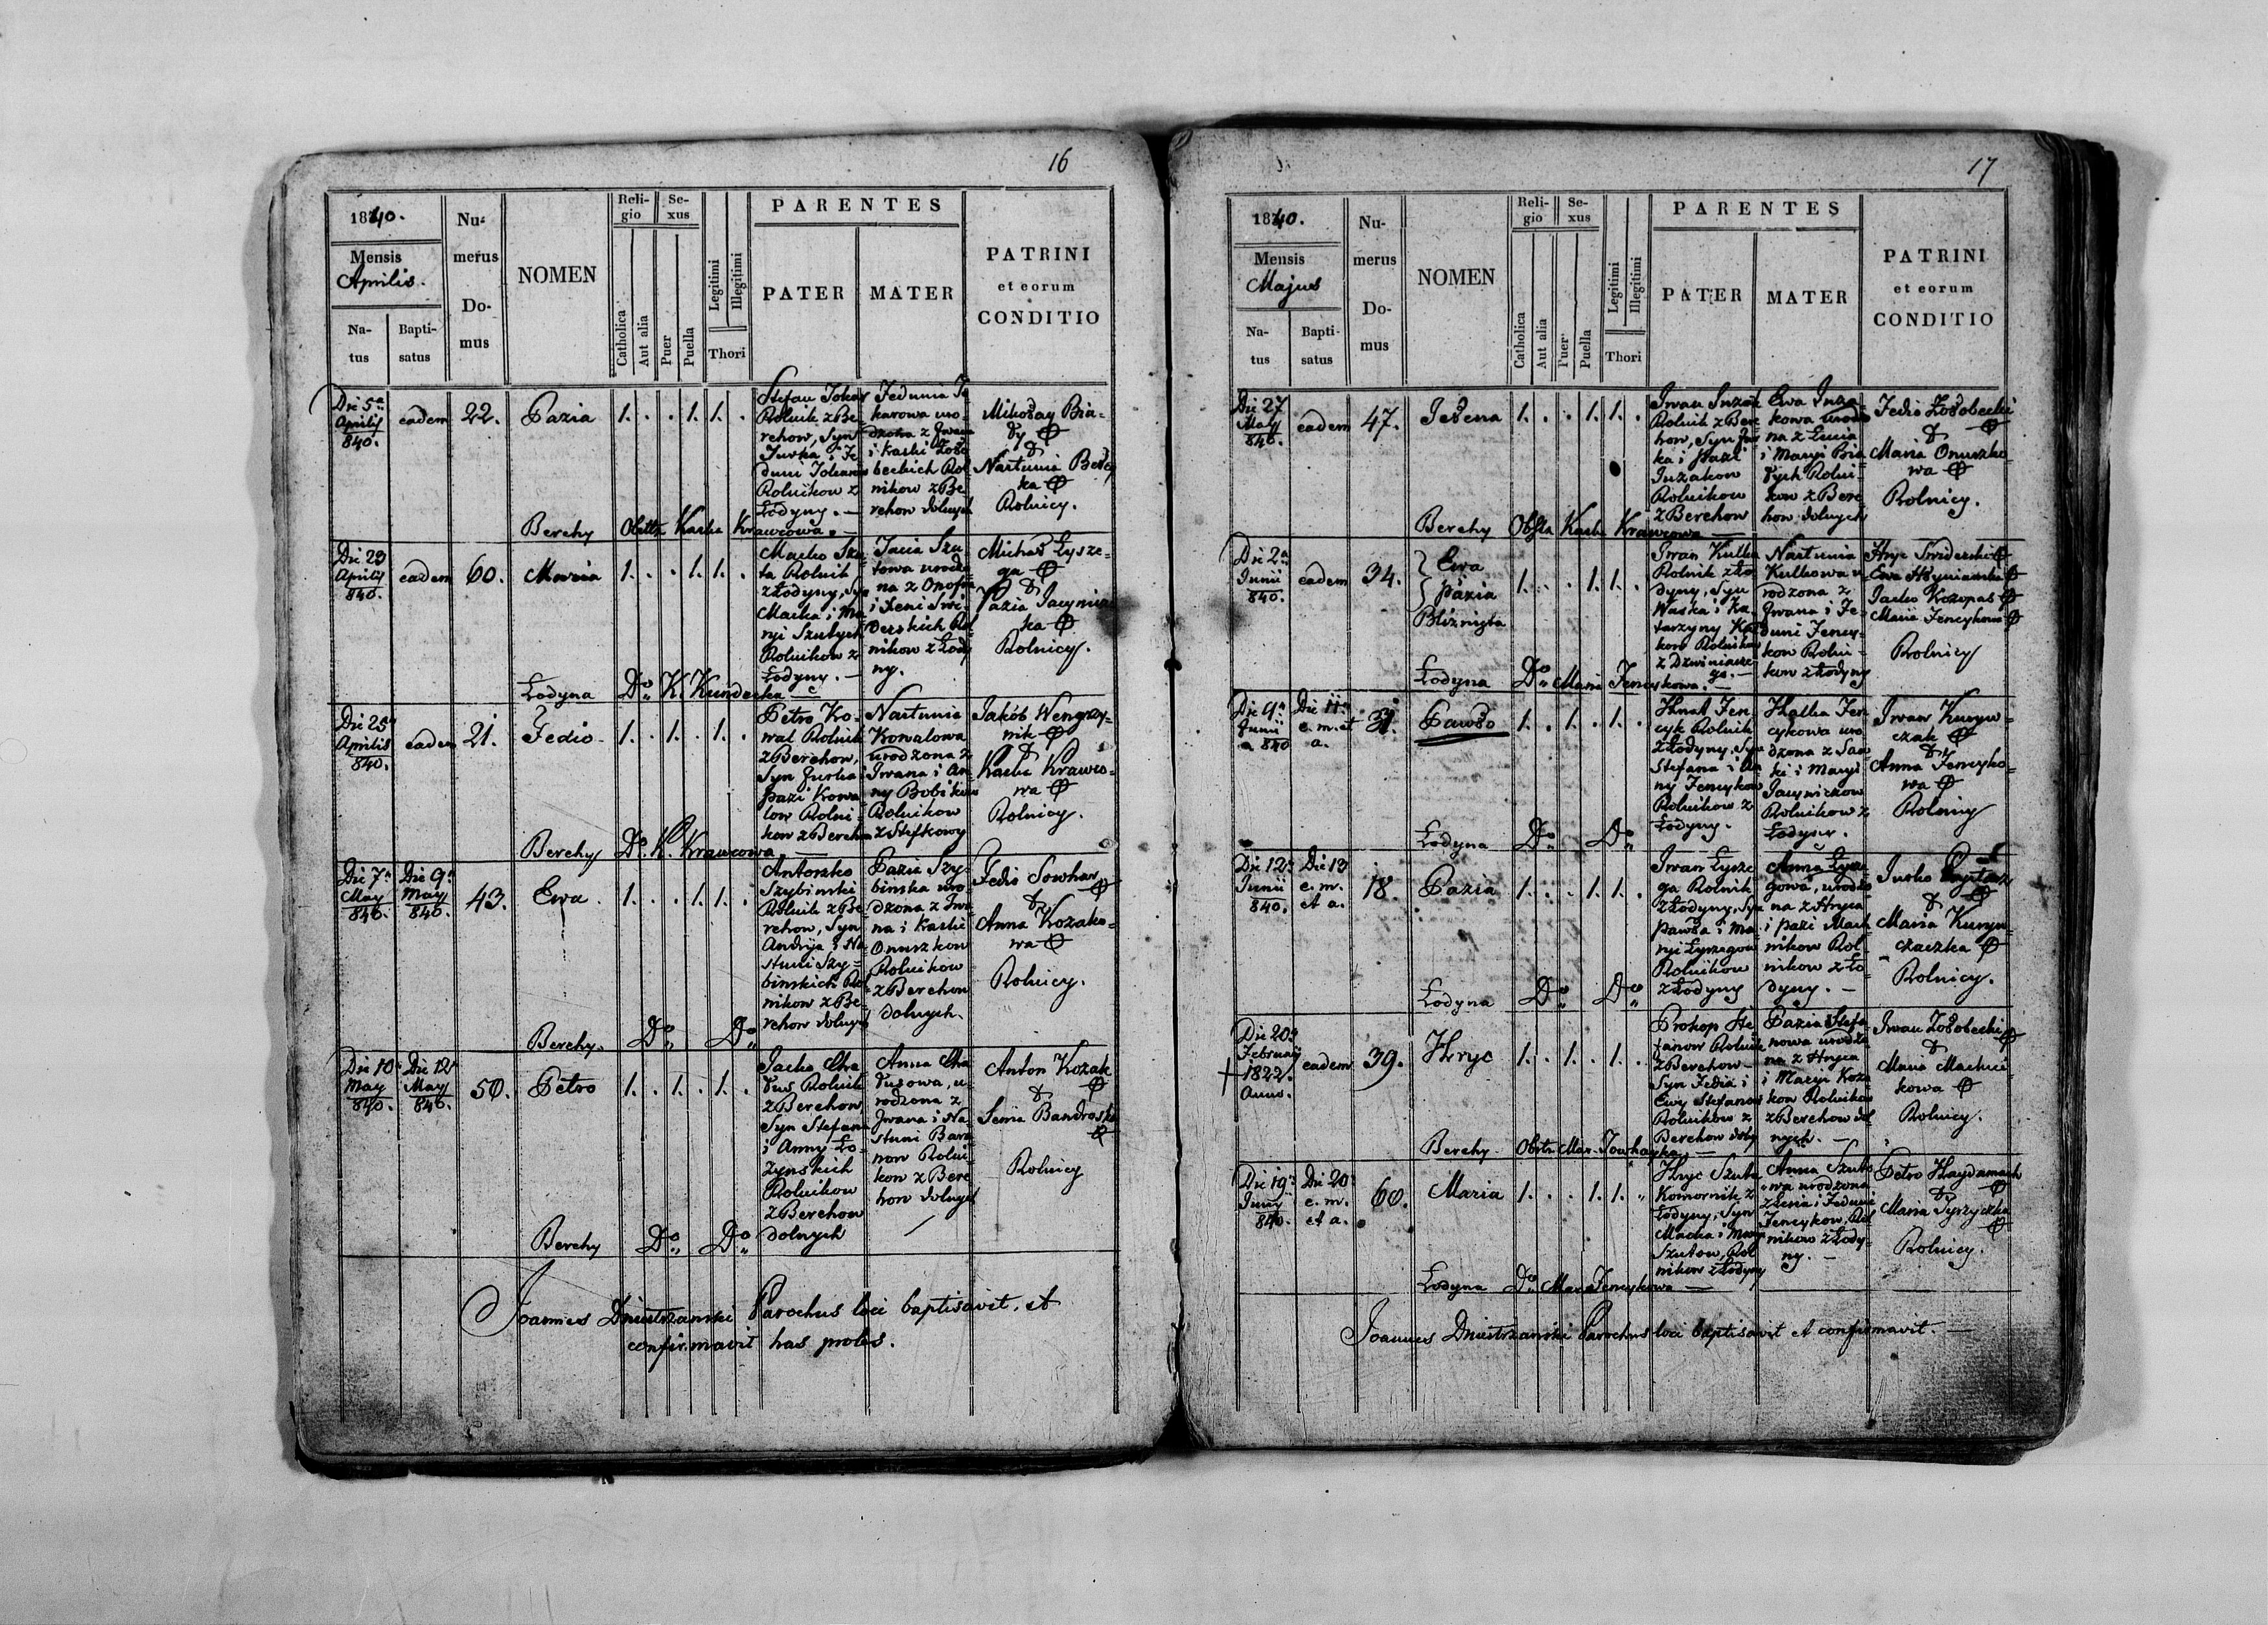 16
1840.
Mensis
Aprilis.
Na-
tus
Bapti-
satus
Nu-
merus
Do-
mus
NOMEN
Reli-
gio
Catholica
Aut alia
Se-
xus
Puer
Puella
Legitimi
Illegitimi
Thori
PARENTES
PATER
MATER
PATRINI
et eorum
CONDITIO
Die 5a
Aprilis
840.
eadem
22.
Pazia
1. . . 1. 1. .
Stefan
Rolnik z Be
rehow, Syn
Jurka i Fe
duni
Rolnikow z
Łodyny. —
Fedunia
karowa uro-
dzona z Iwana
i Kaśki
Rol
nikow z Be
rehow dolnych
Mikołay Bia-
ły
&
Nastunia
ka
Rolnicy.
Berehy Kaśka Krawcowa. —
Die 23
Aprilis
840.
eadem
60.
Maria
1. . . 1. 1. .
Macko Szu
ta Rolnik
z Łodyny, Syn
Macka i Ma
ryi Szutych
Rolnikow z
Łodyny. —
Szu
towa urodzo
na z Onofra
i Seni Swi
derskich Rol
nikow z Łody
ny.
Michał Łysze-
ga
&
Pazia Jacynicz
ka
Rolnicy.
Łodyna Do„ K.
Die 25
Aprilis
840.
eadem
21.
Fedio
1. . 1. . 1. .
Petro Ko-
wal Rolnik
z Berehow,
Syn Jurka i
Pazi Kowa
low Rolni-
kow z Berehow
Nastunia
Kowalowa
urodzona z
Iwana i An
ny Bobikow
Rolnikow
z Stefkowy
Jakób Wengrzy-
nik
&
Kaśka Krawco-
wa
Rolnicy.
Berehy Do. K. Krawcowa —
Die 7a
May
840.
Die 9a
May
840.
43.
Ewa.
1. . . 1. 1. .
Antoszko
Szybinski
Rolnik z Be
rehow, Syn
Andrija i Na
stuni Szy-
binskich Rol
nikow z Be
rehow dolnych
Pazia Szy
binska uro
dzona z Iwa
na i Kaśki
Onuszkow
Rolnikow
z Berehow
dolnych.
Fedio Sowhan
&
Anna Kozako-
wa
Rolnicy.
Berehy. Do„ Do„
Die 10a
May
840.
Die 12a
May
840.
50.
Petro
1. . 1. . 1. .
Jacko
Rolnik
z Berehow
Syn Stefana
i Anny Ło-
żynskich
Rolnikow
z Berehow
dolnych
Anna
u-
rodzona z
Iwana i Na
stuni Bara
now Rolni
kow z Bere
how dolnych
Anton Kozak
&
Senia Bandroska
Rolnicy
Berehy Do„ Do„
Joannes Dniestrzanski Parochus loci baptisavit, et
confirmavit has proles.
17
1840.
Mensis
Majus
Na-
tus
Bapti-
satus
Nu-
merus
Do-
mus
NOMEN
Reli-
gio
Catholica
Aut alia
Se-
xus
Puer
Puella
Legitimi
Illegitimi
Thori
PARENTES
PATER
MATER
PATRINI
et eorum
CONDITIO
Die 27
May
840.
eadem
47.
Jełena
1. . . 1. 1. .
Iwan
Rolnik z Bere
how, Syn
ka i Pazi
Rolnikow
z Berehow
Ewa
kowa urodzo
na z Łucia
i Maryi Bia
łych Rolni-
kow z Bere
how dolnych
Fedio Żołobecki
&
Maria Onuszko-
wa
Rolnicy.
Berehy Kaśka Krawcowa —
Die 2a
Junii
840.
eadem
34.
Ewa
Pazia
Bliznięta
1. . . 1. 1. .
Iwan Kulka
Rolnik z Ło
dyny, Syn
Waska i Ka
tarzyny
Rolnikow
z Dzwiniacz
go. —
Nastunia
Kulkowa u-
rodzona z
Iwana i Fe-
duni Fency-
kow Rolni-
kow z Łodyny
Hryc Swiderski
Ewa
Jacko
Maria Fencykowa
Rolnicy
Łodyna Do„ Maria Fencykowa. —
Die 9a
Junii
a 840
Die 11a
e. m. et
a.
31.
Pawło
1. . 1. . 1. .
Hnat Fen
cyk Rolnik
z Łodyny, Syn
Stefana i An
ny Fencykow
Rolnikow z
Łodyny.
Hałka Fen
cykowa uro
dzona z Sas
ki i Maryi
Jacynickow
Rolnikow z
Łodyny.
Iwan Kuryw-
czak
&
Anna Fencyko-
wa
Rolnicy
Łodyna Do„ Do„
Die 12a
Junii
840.
Die 13
e. m.
et a.
18.
Pazia
1. . . 1. 1. .
Iwan Łysze
ga Rolnik
z Łodyny, Syn
Pawła i Ma-
ryi Łyszegow
Rolnikow
z Łodyny
Anna Łysze
gowa, urodzo
na z Hryca
i Pazi Mach
nikow Rol-
nikow z Ło
dyny. —
Jurko
&
Maria Kuryw-
czaczka
Rolnicy.
Łodyna Do„ Do„
Die 20a
February
1822.
Anno.
eadem
39.
Hryc
1. . 1. . 1. .
Prokop Ste
fanow Rolnik
z Berehow
Syn Fedia i
Ewy Stefanow
Rolnikow z
Berehow dolny
Pazia Stefa-
nowa urodzo
na z Hryca
i Maryi Koza
kow Rolnikow
z Berehow dol
nych. —
Iwan Żołobecki
&
Maria
kowa
Rolnicy.
Berehy
Die 19a
Junii
840.
Die 20a
e. m.
et a.
60.
Maria
1. . . 1. 1. „
Hryc Szuta
Komornik z
Łodyny, Syn
Macka i Maryi
Szutow, Rol
nikow z Łodyny
Anna Szuto
wa urodzona
z Łesia i Feduni
Fencykow, Rol
nikow z Łody-
ny. —
Petro Haydamach
&
Maria
Rolnicy.
Łodyna Do„ Maria Fencykowa —
Joannes Dniestrzanski Parochus loci baptisavit et confirmavit. —